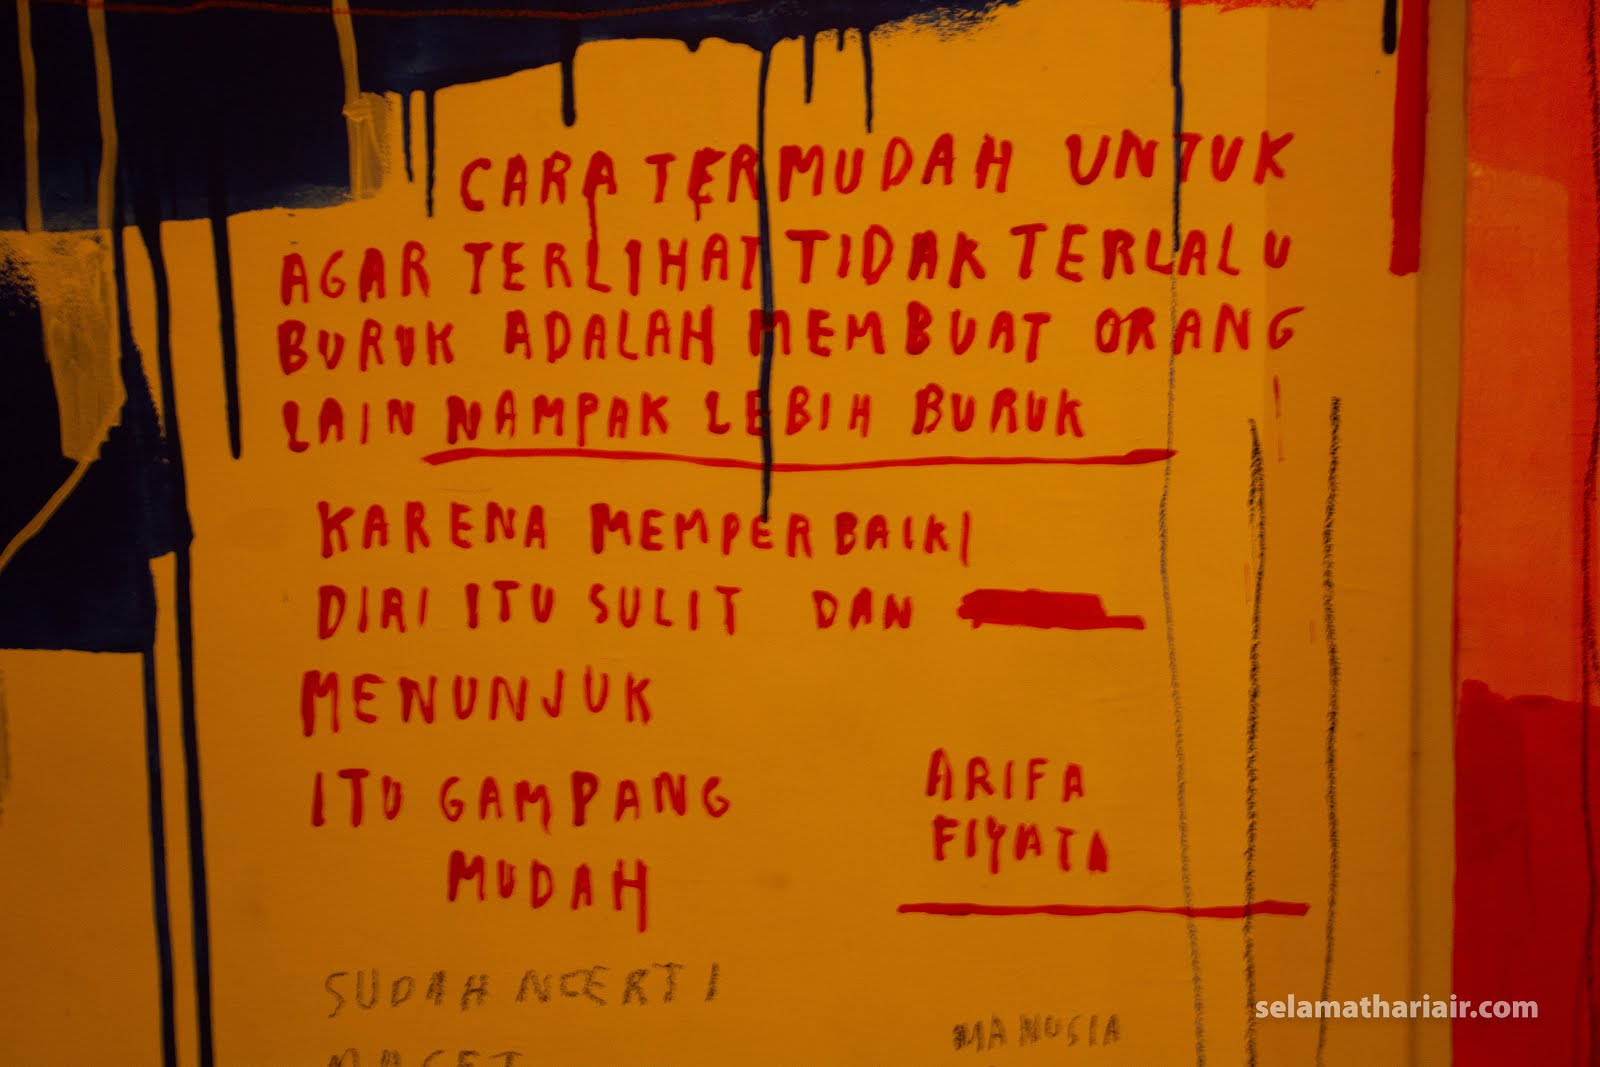 CARA TERMUDAH UNTUK
AGAR TERLIHAT TIDAK TERLALU
BURUK ADALAH MEMBUAT ORANG
LAIN NAMPAK LEBIH BURUK
KARENA MEMPERBAIKI
DIRI ITU SULIT DAN
MENUNJUK
ITU GAMPANG
MUDAH
ARIFA
FIYATA
SUDAH NGERTI
MANUSIA
selamathariair.com